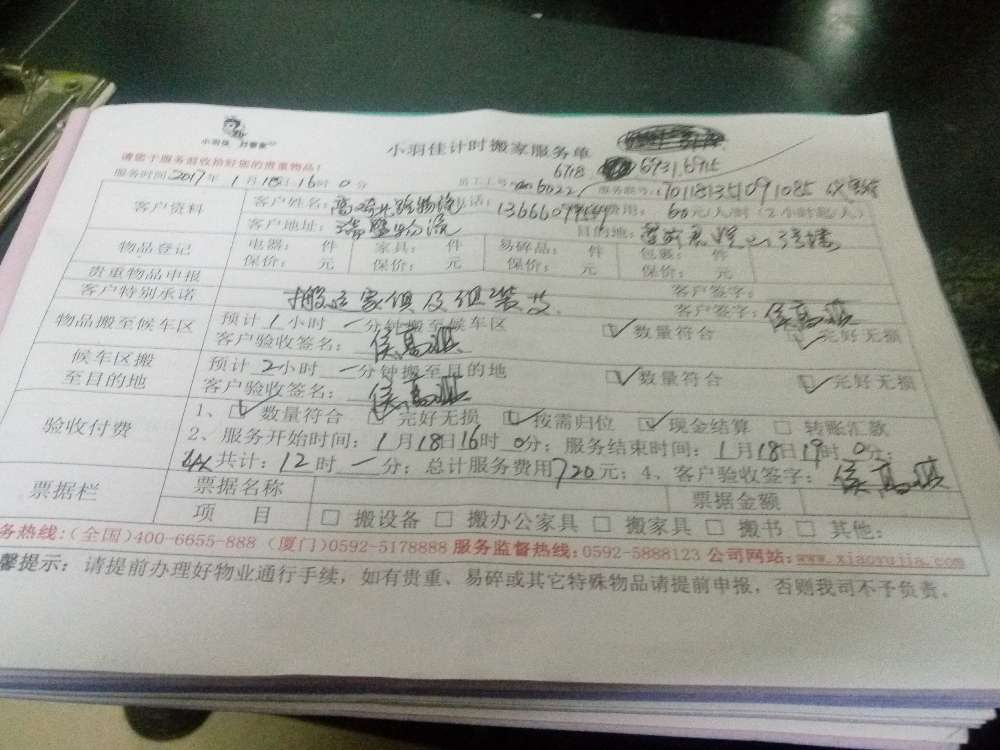 小羽佳 好管家
小羽佳计时搬家服务单
6718 6931.6915
请您于服务前收拾好您的贵重物品！
服务时间2017年1月18日16时0分 员工工号: 6022 服务联号:
客户资料 客户姓名: 电话: 费用: 60元/人/时(2小时起/人)
客户地址: 目的地:
物品登记 电器: 件 家具: 件 易碎品: 件 包裹: 件
保价: 元 保价: 元 保价: 元 保价: 元
贵重物品申报 客户签字:
客户特别承诺 搬运家俱及组装 客户签字:
物品搬至候车区 预计1小时一分钟搬至候车区 数量符合 完好无损
客户验收签名:
候车区搬至目的地 预计2小时一分钟搬至目的地 数量符合 完好无损
客户验收签名:
验收付费 1、 数量符合 完好无损 按需归位 现金结算 转账汇款
2、服务开始时间: 1月18日16时0分; 服务结束时间: 1月18日19时0分;
共计: 12时一分; 总计服务费用720元; 4、客户验收签字:
票据栏 票据名称 票据金额
项目 □ 搬设备 □ 搬办公家具 □ 搬家具 □ 搬书 □ 其他:
务热线:(全国)400-6655-888 (厦门)0592-5178888 服务监督热线:0592-5888123 公司网站:www.xiaoyujia.com
馨提示: 请提前办理好物业通行手续, 如有贵重、易碎或其它特殊物品请提前申报, 否则我司不予负责。